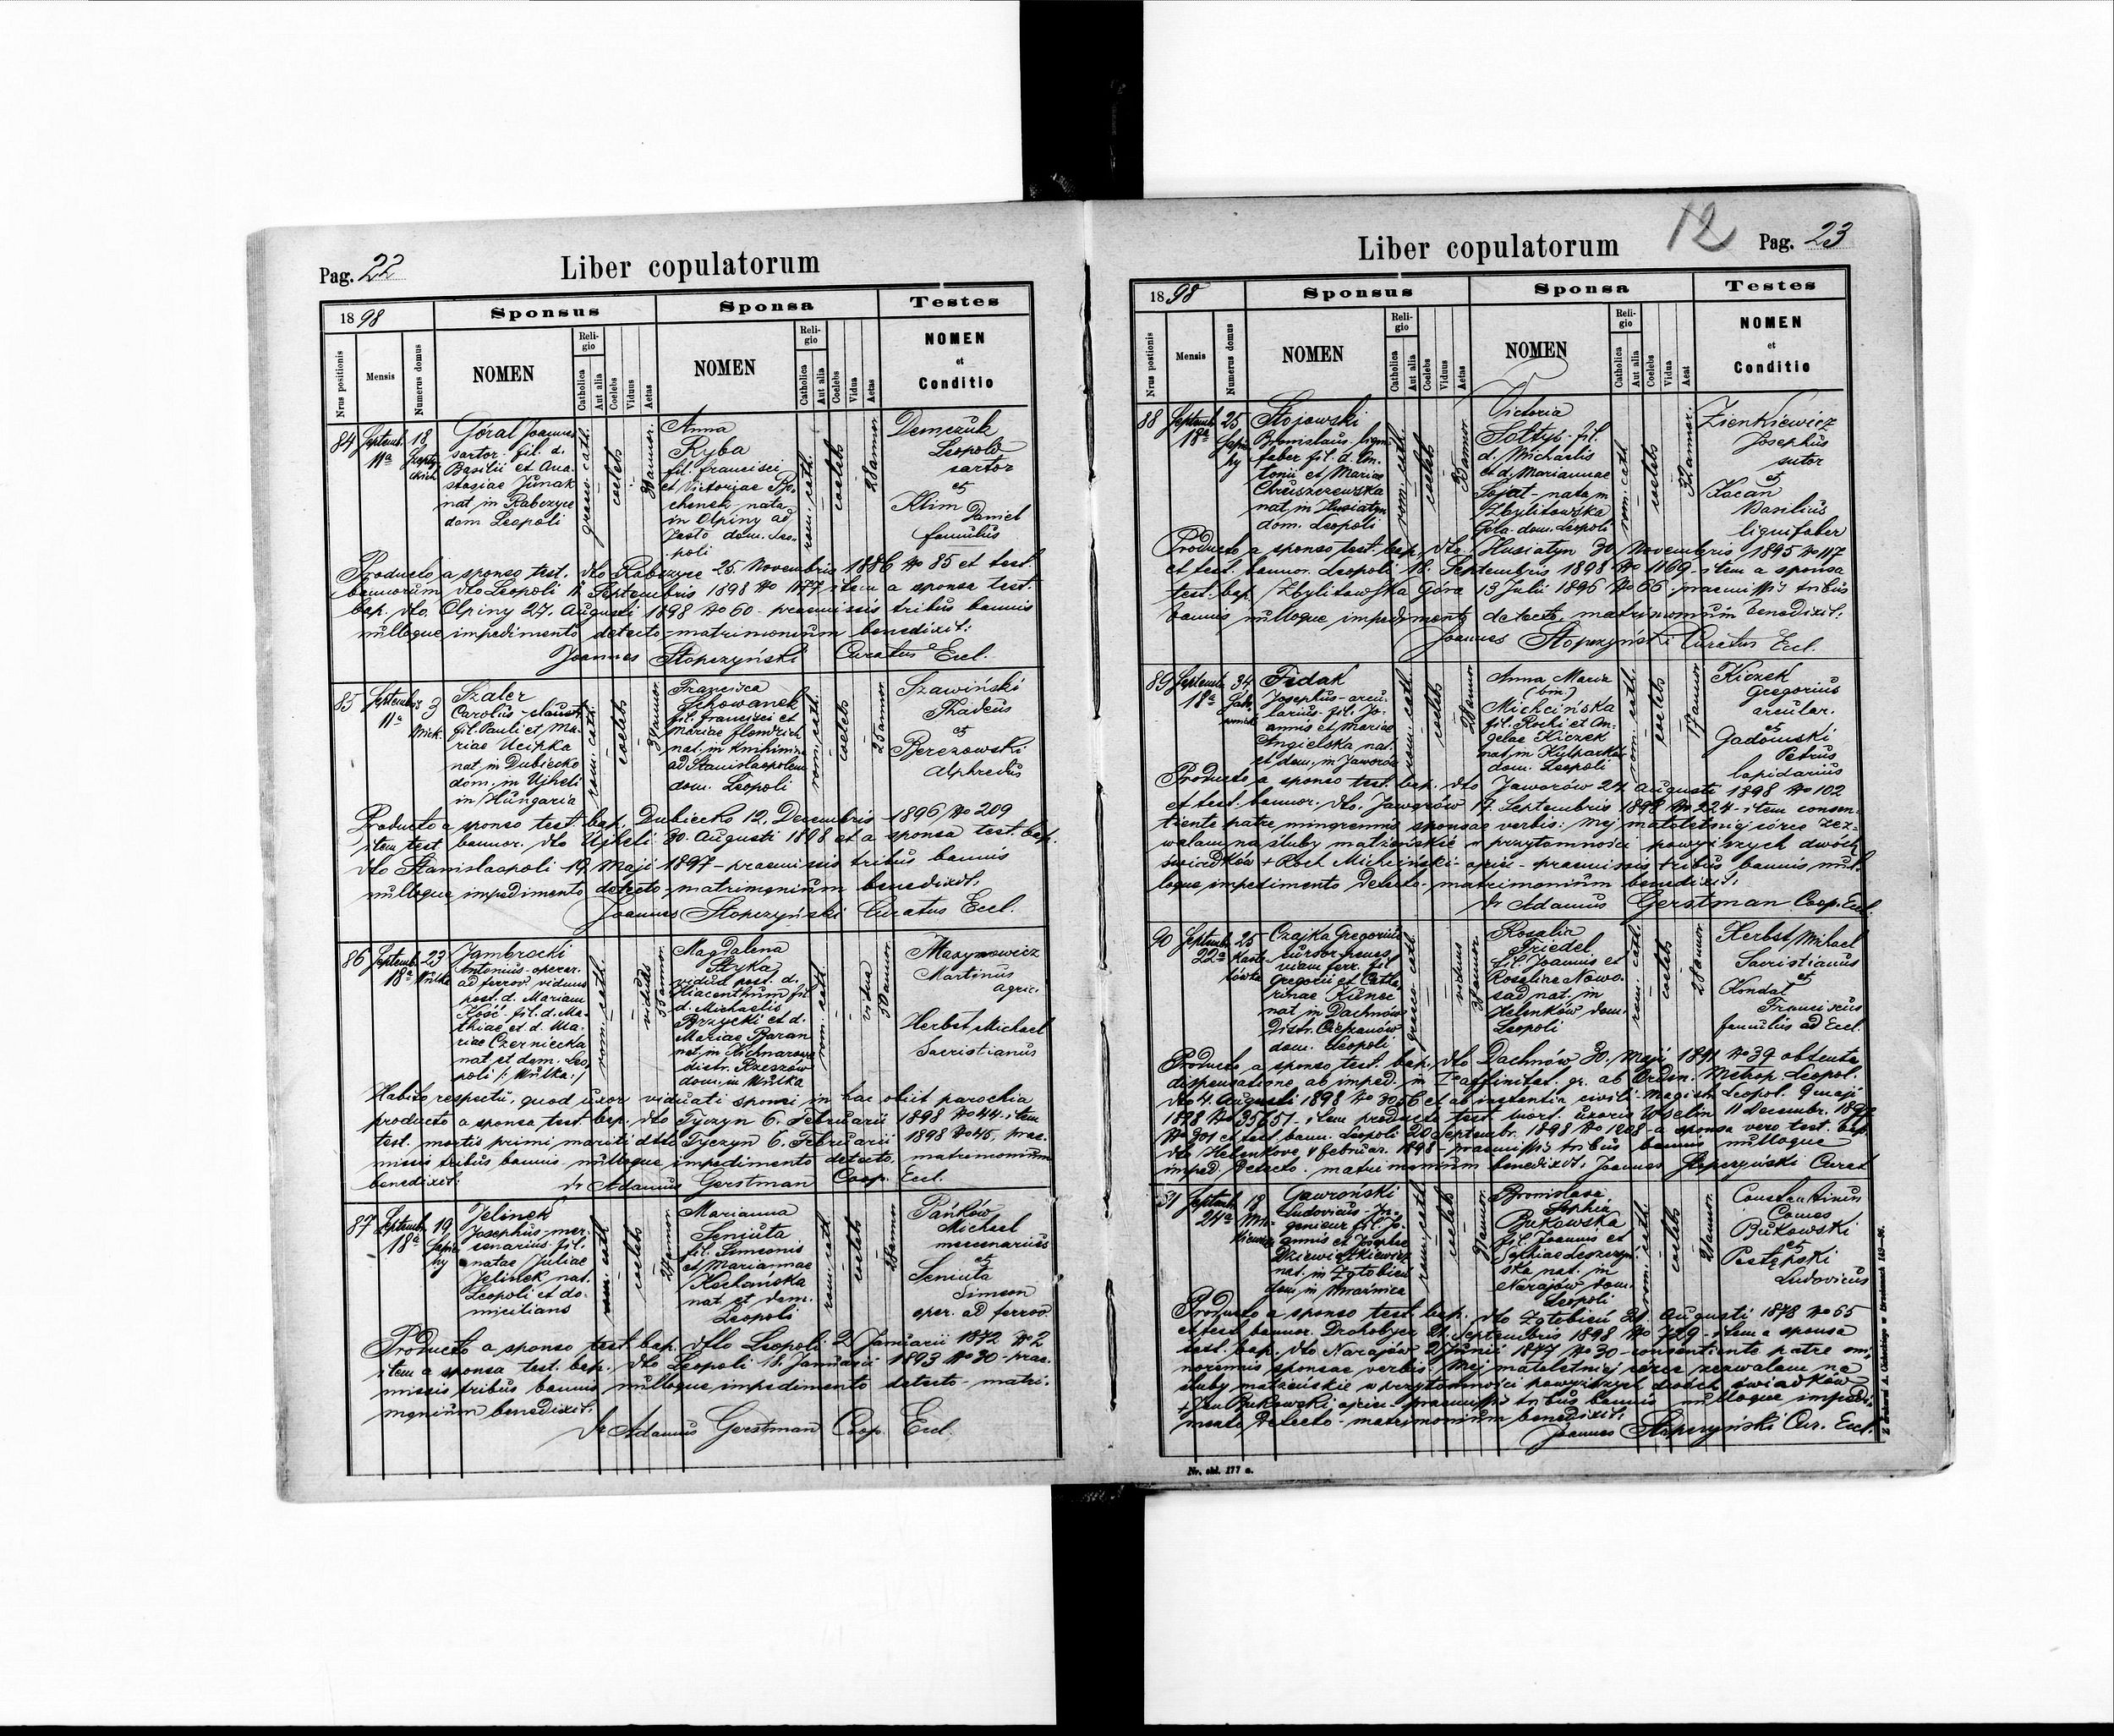 Pag. 22
Liber copulatorum
1898
Sponsus
Sponsa
Testes
Nrus positionis
Mensis
Numerus domus
NOMEN
Religio
Catholica
Aut alia
Coelebs
Viduus
Aetas
NOMEN
Religio
Catholica
Aut alia
Coelebs
Vidua
Aetas
NOMEN
et
Conditio
84
Septemb.
11a
18
Góral Joannes
sartor. fil. d.
Basilii et Ana
stasiae Junak
nat in Rabczyce
dom Leopoli
graeco cath.
coelebs
Anna
Ryba
fil. francisci
et Victoriae
chenek nata
in Olpiny ad
Jasło dom. Leo-
poli
rom. cath.
coelebs
28 annor.
Demczuk
Leopold
sartor
et
Klim
Daniel
famulus
Producto a sponso test. dto Rabczyce 25 Novembris 1886 No 85 et test.
bannorum dto Leopoli 11 Septembris 1898 No 1177 item a sponsa test.
bap. dto. Olpiny 27. Augusti 1898 No 60 - praemissis tribus bannis
nulloque impedimento detecto - matrimonium benedixit:
Joannes Stopczyński Curatus Eccl.
85
Septembris
11a
3
Mick.
Szaler
Carolus
fil. Pauli et Ma-
riae Ucipka
nat in Dubiecko
dom. in Ujheli
in Hungaria
rom. cath.
coelebs
Francisca
Schowanek
fil. francisci et
Mariae
nat. in Knihinin
ad Stanislaopolem
dom. Leopoli
rom. cath.
coelebs
25 annor
Szawiński
Thadeus
et
Berezowski
Alphredus
Producto a sponso test. bap. Dubiecko 12. Decembris 1896 No 209
item test bannor. dto Ujheli 30. Augusti 1898 et a sponsa test. bap.
dto Stanislaopoli 19 Maji 1897 - praemissis tribus bannis
nulloque impedimento detecto - matrimonium benedixit.
Joannes Stopczyński Curatus Eccl.
86
Septemb.
18a
23
Wulka
Jambrocki
Antonius - operar.
ad ferrov. viduus
post. d. Mariam
Kość - fil. d. Ma-
thiae et d. Ma-
riae Czerniecka
nat et dom. Leo
poli /: Wulka :/
rom. cath.
viduus
Magdalena
Styka
vidua post. d.
Hiacenthum fil
d. Michaelis
Brzycki et d.
Mariae Baran
nat. in
distr. Rzeszów
dom. in Wulka
rom. cath
vidua
Maxymowicz
Martinus
agric.
Herbst Michael
Sacristianus
Habito respectu, quod uxor viduati sponsi in hac obiit parochia
producto a sponsa test. bap. dto Tyczyn 6. Februarii 1898 No 44. item
test. mortis primi mariti ddto Tyczyn 6. Februarii 1898 No 45. prae-
missis tribus bannis - nulloque impedimento detecto. matrimonium
benedixit: Dr Adamus Gerstman Coop. Eccl.
87
Septemb.
18a
19
Sapie
hy
Jelinek
Josephus mer-
cenarius - fil.
natae Juliae
Jelinek nat.
Leopoli et do-
micilians
rom. cath
coelebs
27 annor
Marianna
Seniuta
fil. Simeonis
et Mariannae
Kochańska
nat. et dom.
Leopoli
rom. cath.
coelebs
Pańków
Michael
mercenarius
et
Seniuta
Simeon
oper. ad ferrov.
Producto a sponso test. bap. ddto Leopoli 2 Januarii 1872 No 2
item a sponsa test. bap. dto Leopoli 18. Januarii 1893 No 30 - prae-
missis tribus bannis nulloque impedimento detecto - matri-
monium benedixit.
Dr Adamus Gerstman Coop. Eccl.
12
Pag. 23
Liber copulatorum
1898
Sponsus
Sponsa
Testes
Nrus positionis
Mensis
Numerus domus
NOMEN
Religio
Catholica
Aut alia
Coelebs
Viduus
Aetas
NOMEN
Religio
Catholica
Aut alia
Coelebs
Vidua
Aeat
NOMEN
et
Conditio
88
Septemb.
18a
25
Sapie
hy
Stojowski
Bronislaus - ligni
faber fil. d. An-
tonii et Mariae
Chruszczewska
nat. in Husiatyn
dom. Leopoli
rom. cath.
coelebs
Victoria
Sołtys - fil.
d. Michaelis
et d. Mariannae
Sojat - nata in
Zbylitowska
Góra - dom. Leopoli
rom. cath.
coelebs
Zienkiewicz
Josephus
sutor
et
Kocan
Basilius
lignifaber
Producto a sponso test. bap. dto. Husiatyn 30 Novembris 1895 No 117
et test. bannor. Leopoli 18. Septembris 1898 No 1169 - item a sponsa
test. bap. Zbylitowska Góra 13 Julii 1896 No 66 - praemissis tribus
bannis nulloque impedimento detecto, matrimonium benedixit:
Joannes Stopczyński Curatus Eccl.
89
Septemb.
18a
34
Fedak
Josephus - arcu-
larius - fil. Jo-
annis et Mariae
Angielska nat.
et dom. in Jaworów
rom. cath
coelebs
28 annor
Anna Maria
(bin.)
Michcińska
fil. Rochi et An-
gelae Kiczek
nat. in Kulparków
dom. Leopoli
rom. cath.
coelebs
17 annor
Kiczek
Gregorius
arcular.
et
Gadomski
Petrus
lapidarius
Producto a sponso test. bap. dto Jaworów 24 Augusti 1898 No 102
et test. bannor. dto. Jaworów 17. Septembris 1898 No 224 - item consen-
tiente patre minorennis sponsae verbis: Mej małoletniej córce zez-
walam na śluby małżeńskie w przytomności powyższych dwóch
świadków + Roch Michciński - ojciec - praemissis tribus bannis nul-
loque impedimento detecto - matrimonium benedixit:
Dr Adamus Gerstman Coop. Eccl.
90
Septemb.
22a
25
Czajka Gregorius
cursor penes
viam ferr. fil
Gregorii et Catha
rinae Kunec
nat in Dachnów
Distr. Cieszanów
dom. Leopoli
graeco cath.
viduus
Rosalia
Friedel
fil. Joannis et
Rosaliae Nowo-
sad nat. in
Helenków dom.
Leopoli
rom. cath.
coelebs
Herbst Mihael
Sacristianus
et
Kondat
Franciscus
famulus ad Eccl.
Producto a sponso test. bap. dto Dachnów 30. Maji 1891 No 39 obtenta
dispensatione ab imped. in I affinitat. gr. ab Ordin. Metrop. Leopol.
dto 4. Augusti 1898 No 3056 et ab instantia civili Magistr. Leopol. 9 Maji
1898 No 35651 - item producto test mort. uxoris 11 decembr. 1897
No 301 et test bann. Leopoli 20 Septembr. 1898 No 1208 - a sponsa vero test. bap.
dto Helenkow februar. 1898 - praemissis tribus bannis nulloque
imped. detecto - matrimonium benedixit, Joannes Stopczyński Curat
91
Septemb.
24a
18
Gawroński
Ludovicus - In-
genieur fil. Jo-
annis et Josephae
nat. in Zgłobień
dom. in Mraźnica
rom. cath
coelebs
Bronislava
Sophia
Bukowska
fil. Joannis et
Sophiae Leszczyń
ska nat. in
Narajów dom.
Leopoli
rom. cath.
coelebs
21 annor
Constantinus
Comes
Bukowski
et
Postępski
Ludovicus
Producto a sponso test. bap. dto Zgłobień 31. Augusti 1878 No 65
et test bannor. Drohobycz 21. Septembris 1898 No 729 - item a sponsa
test. bap. dto Narajów 2 Junii 1877 No 30 - consentiente patre mi-
norennis sponsae verbis: Mej małoletniej córce zezwalam na
śluby małżeńskie w przytomności powyższych dwóch świadków
+ Jan Bukowski ojciec - praemissis tribus bannis nulloque impedi-
mento detecto - matrimonium benedixit:
Joannes Stopczyński Cur. Eccl.
Nr. skł. 177 a.